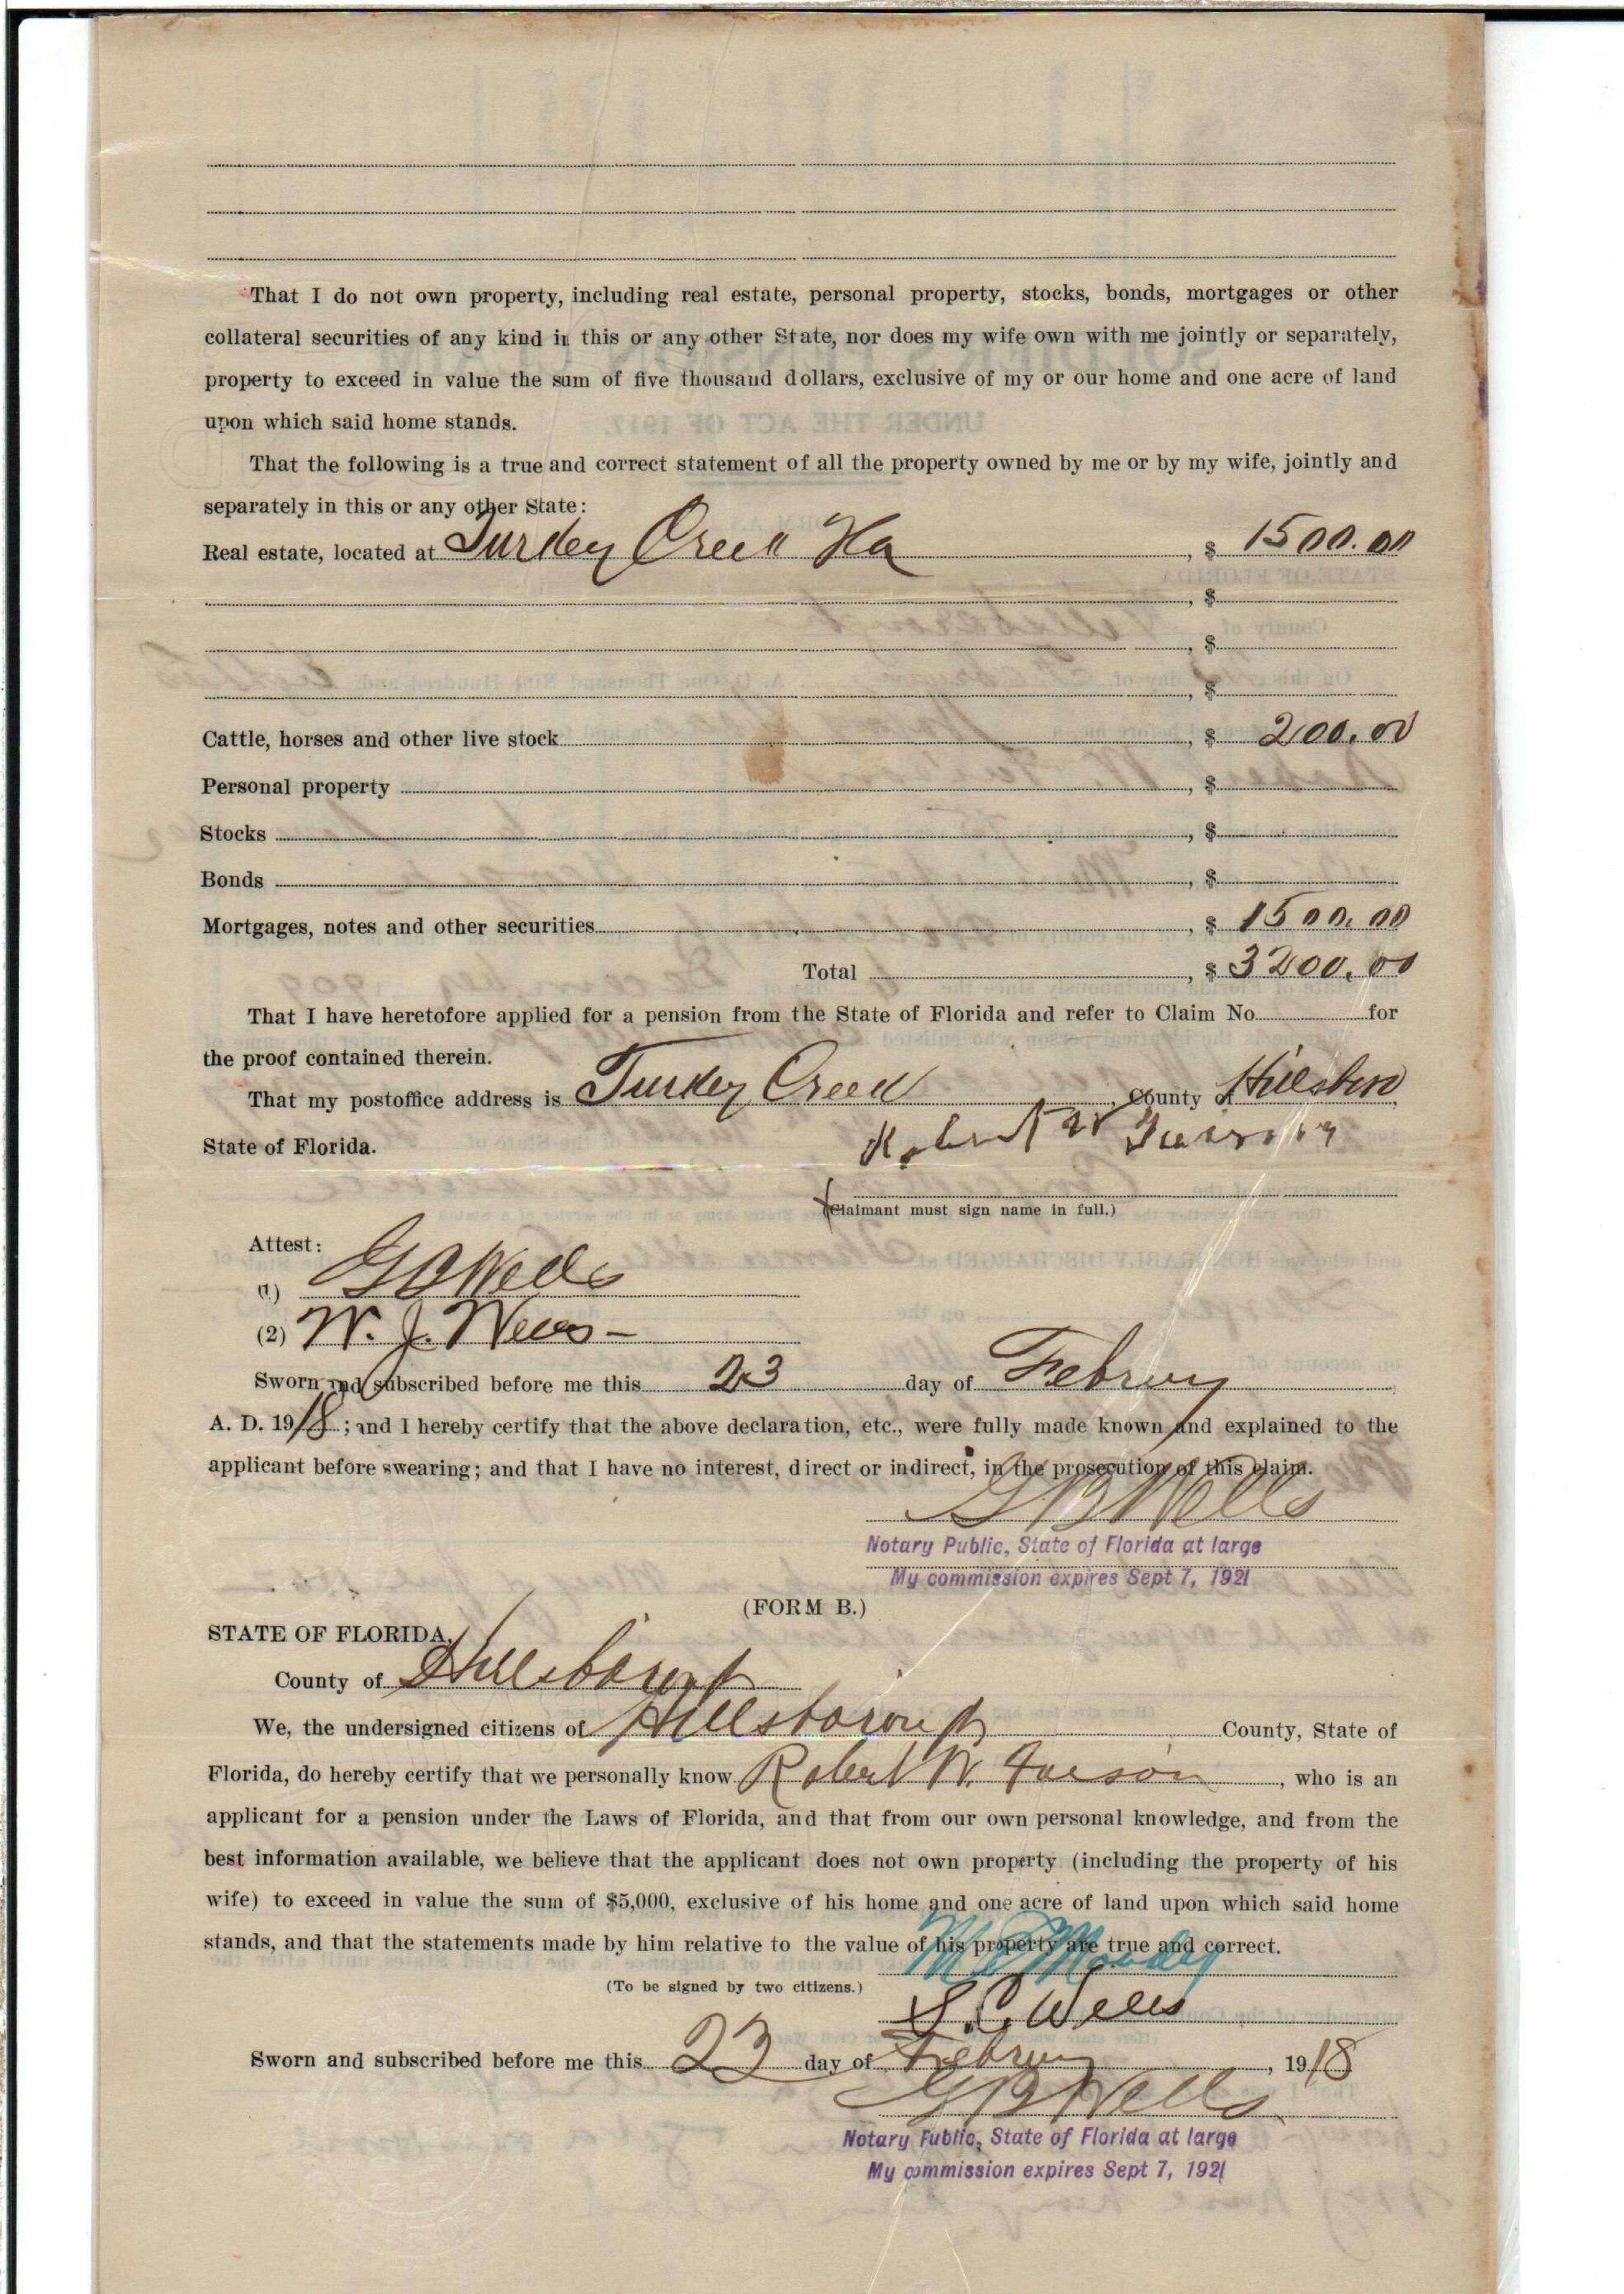 That I do not own property, including real estate, personal property, stocks, bonds, mortgages or other
collateral securities of any kind in this or any other State, nor does my wife own with me jointly or separately,
property to exceed in value the sum of five thousand dollars, exclusive of my or our home and one acre of land
upon which said home stands.
That the following is a true and correct statement of all the property owned by me or by my wife, jointly and
separately in this or any other State:
Real estate, located at Turkey Creek Fla, $ 1500.00
, $
, $
, $
Cattle, horses and other live stock, $ 200.00
Personal property, $
Stocks, $
Bonds, $
Mortgages, notes and other securities, $ 1500.00
Total, $ 3200.00
That I have heretofore applied for a pension from the State of Florida and refer to Claim No. for
the proof contained therein.
That my postoffice address is Turkey Creek, County of Hillsboro
State of Florida. Robert W
(Claimant must sign name in full.)
Attest:
(1) G B Wells
(2) W. J. Wells
Sworn and subscribed before me this 23 day of Februry,
A. D. 1918; and I hereby certify that the above declaration, etc., were fully made known and explained to the
applicant before swearing; and that I have no interest, direct or indirect, in the prosecution of this claim.
G B Wells
Notary Public, State of Florida at large
My commission expires Sept 7, 1921
(FORM B.)
STATE OF FLORIDA,
County of Hillsborough
We, the undersigned citizens of Hillsborough County, State of
Florida, do hereby certify that we personally know Robert W., who is an
applicant for a pension under the Laws of Florida, and that from our own personal knowledge, and from the
best information available, we believe that the applicant does not own property (including the property of his
wife) to exceed in value the sum of $5,000, exclusive of his home and one acre of land upon which said home
stands, and that the statements made by him relative to the value of his property are true and correct.
M E Moody
(To be signed by two citizens.)
S. C. Wells
Sworn and subscribed before me this 23 day of Februry, 1918
G B Wells
Notary Public, State of Florida at large
My commission expires Sept 7, 1921